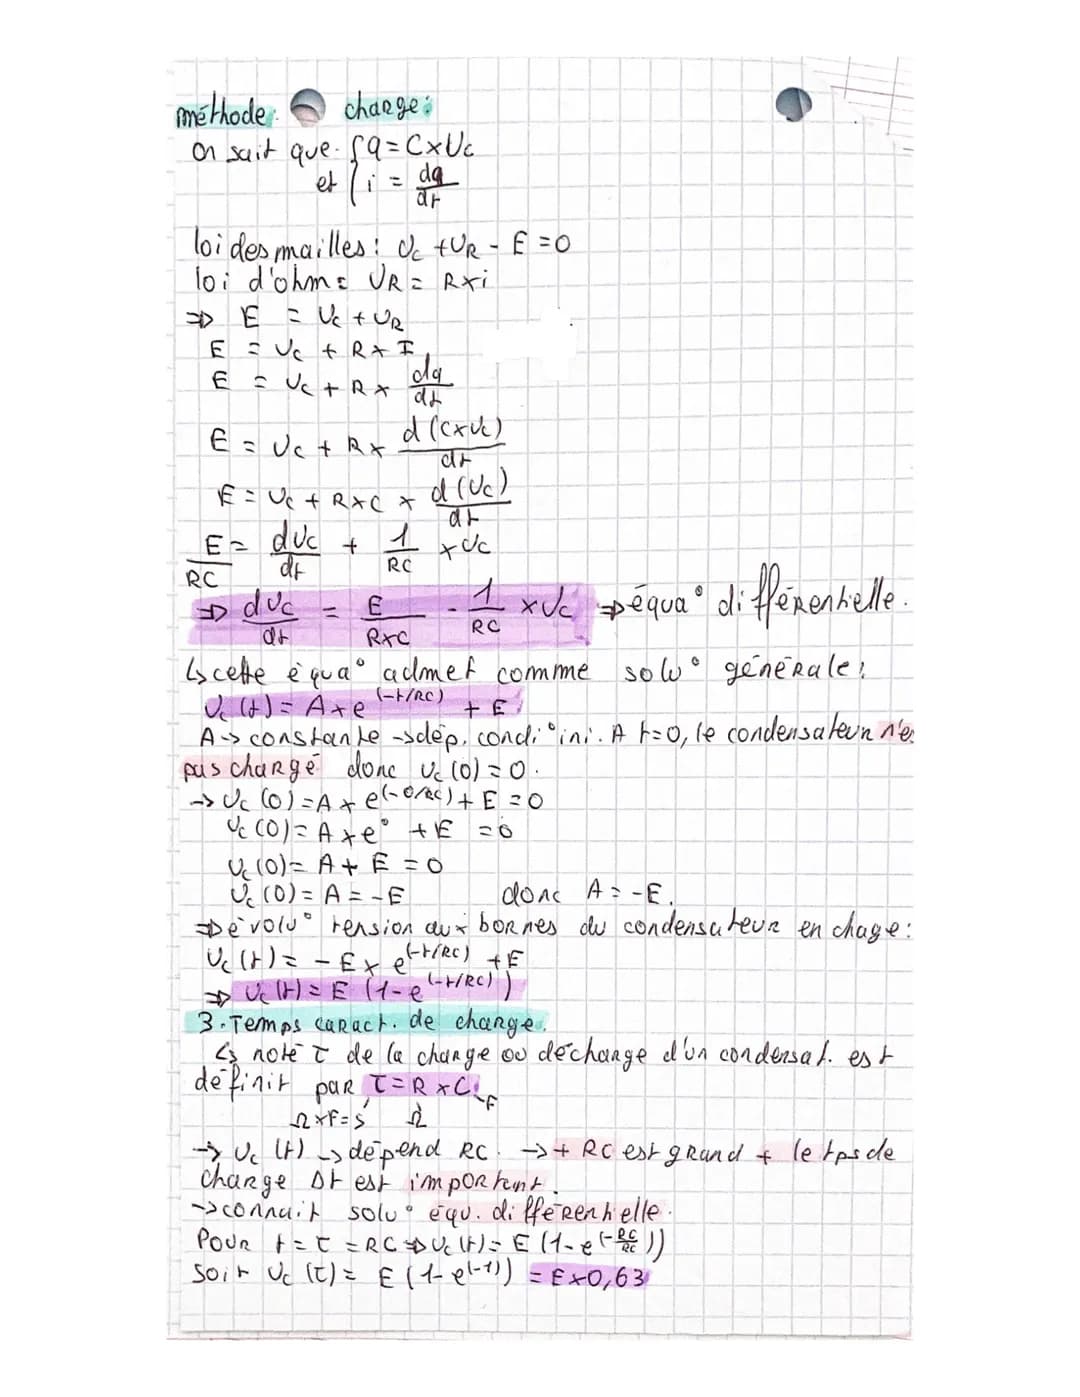 méthode: charge:
On sait que. { q = C×Uc
et { i = dq/dt
loi des mailles: Uc + UR - E = 0
loi d'ohm: UR = R×i
⇒ E = Uc + UR
E = Uc + R×I
E = Uc + R× dq/dt
E = Uc + R× d(C×Uc)/dt
E = Uc + R×C × d(Uc)/dt
E/RC = dUc/dt + 1/RC ×Uc
⇒ dUc/dt = E/R×C - 1/RC ×Uc ⇒ équa° différentielle.
↳ cette équa° admet comme solu° générale:
Uc(t) = A×e^(-t/RC) + E
A → constante → dép. condi° ini. A t=0, le condensateur n'es
pas chargé donc Uc(0) = 0.
→ Uc(0) = A×e^(-0/RC) + E = 0
Uc(0) = A×e° + E = 0
Uc(0) = A + E = 0
Uc(0) = A = -E donc A = -E.
⇒ évolu° tension aux bornes du condensateur en chage:
Uc(t) = -E× e^(-t/RC) + E
⇒ Uc(t) = E (1-e^(-t/RC))
3. Temps caract. de charge.
↳ noté τ de la charge ou décharge d'un condensat. est
définit par τ = R×C F
Ω×F=s Ω
→ Uc(t) ↳ dépend RC. → + RC est grand + le tps de
charge Δt est important.
→ connait solu° équ. différentielle.
Pour t = τ = RC ⇒ Uc(t) = E (1-e^(-RC/RC))
soit Uc(τ) = E (1-e^(-1)) = E×0,63